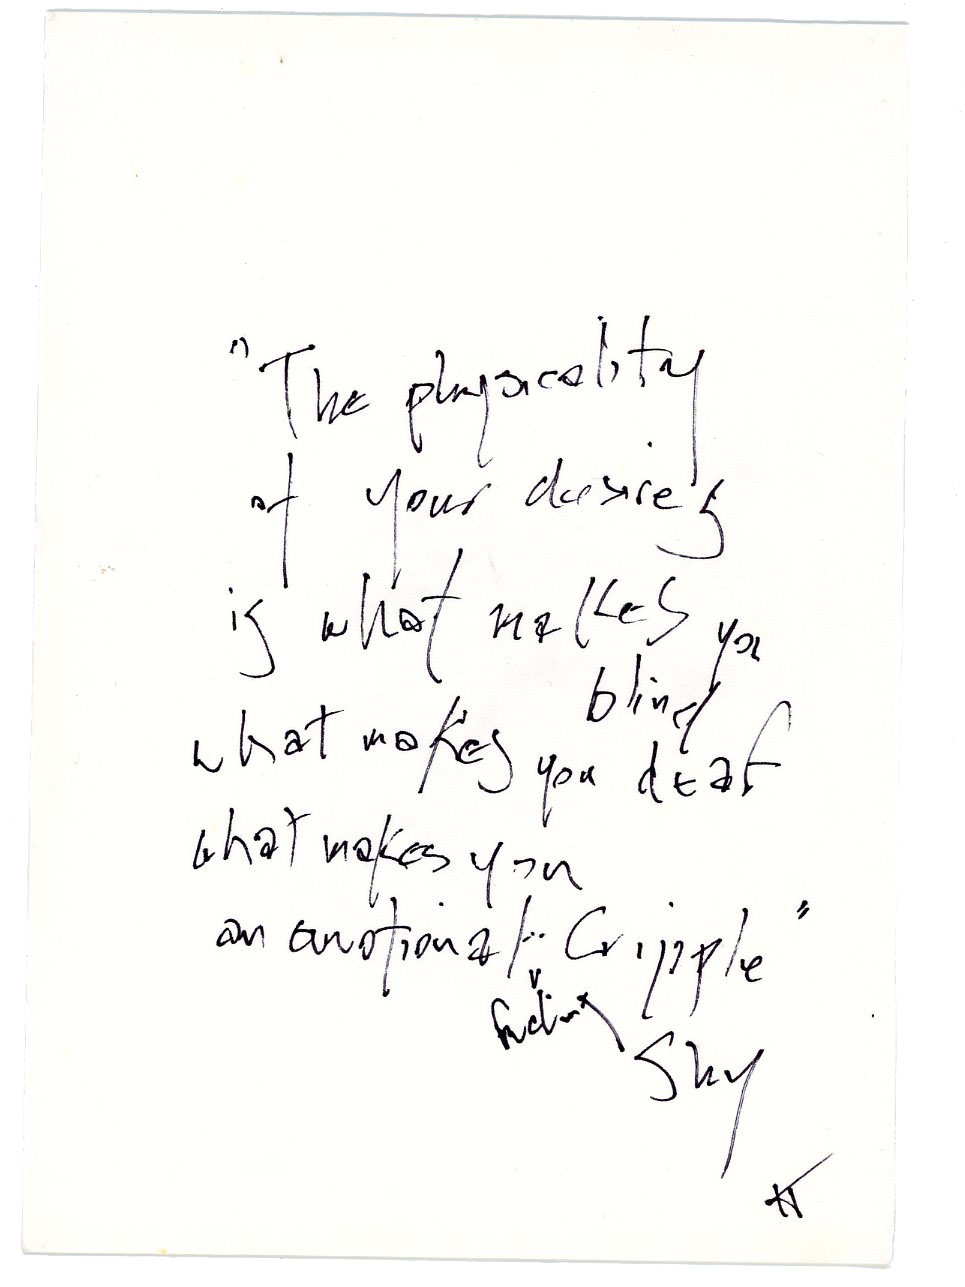 "The physicality
of your desires
is what makes you
blind
what makes you deaf
what makes you
an emotional.. Cripple"
Sky